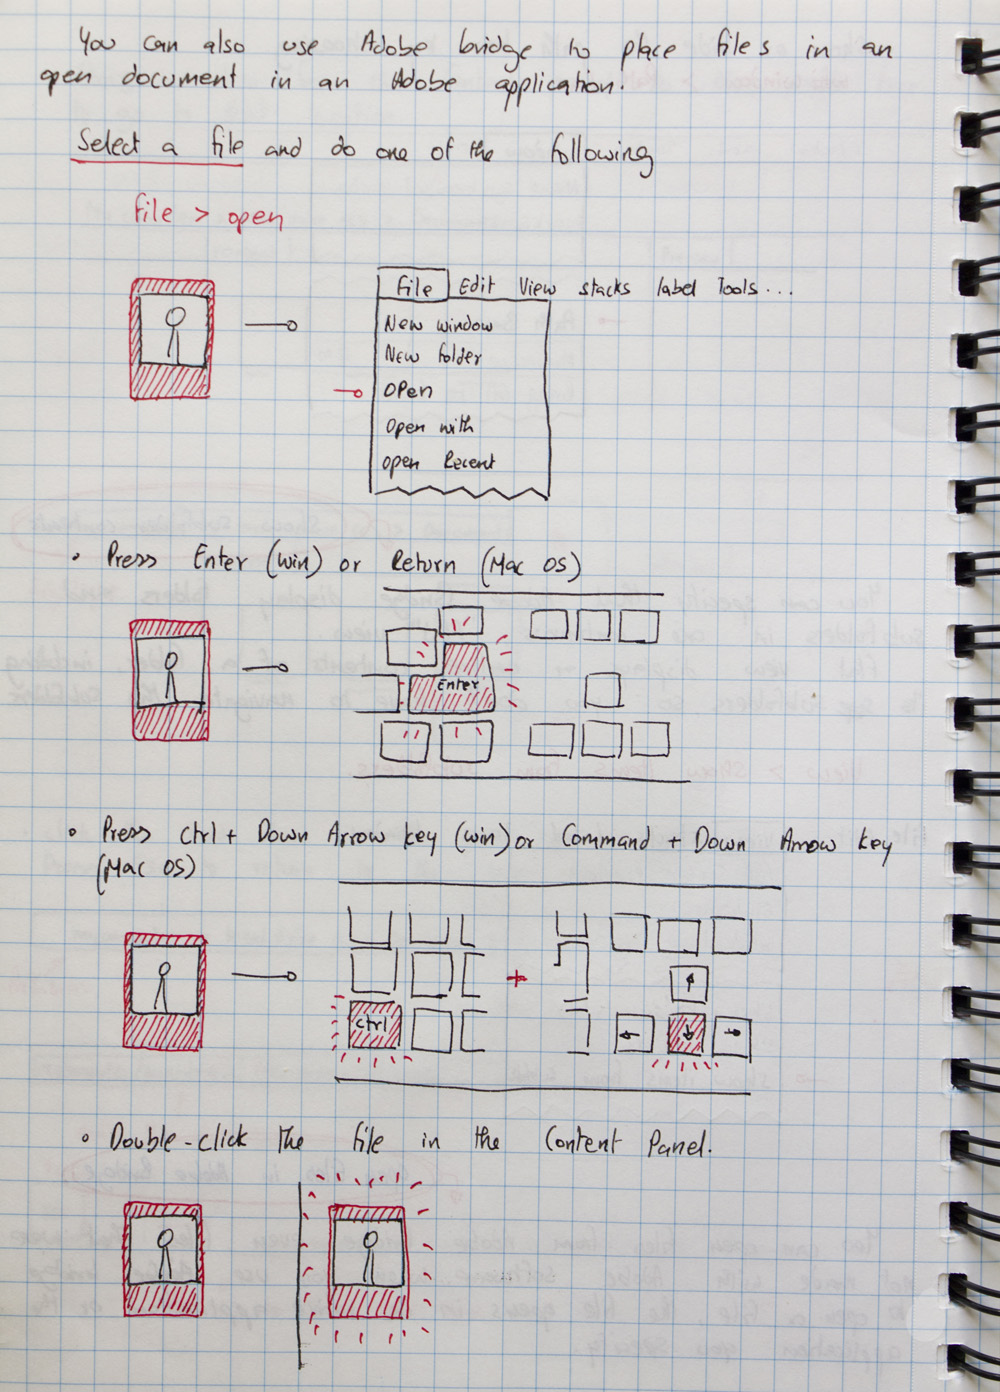 You can also use Adobe bridge to place files in an
open document in an Adobe application.
Select a file and do one of the following
file > open
File Edit View stacks label Tools...
New window
New folder
Open
Open with
Open Recent
• Press Enter (win) or Return (Mac OS)
Enter
• Press ctrl + Down Arrow key (win) or Command + Down Arrow key
(Mac OS)
+
ctrl
• Double-click the file in the Content Panel.